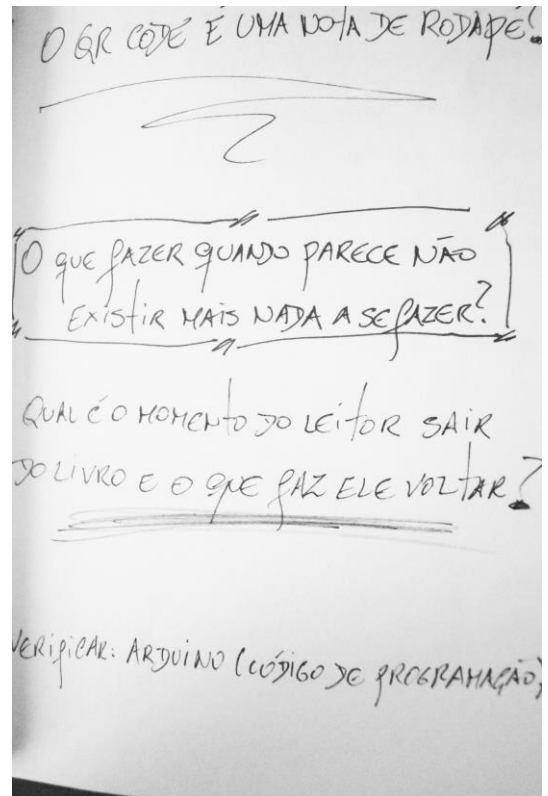 O QR CODE É UMA NOTA DE RODAPÉ?
O QUE FAZER QUANDO PARECE NÃO
EXISTIR MAIS NADA A SE FAZER?
QUAL É O MOMENTO DO LEITOR SAIR
DO LIVRO E O QUE FAZ ELE VOLTAR?
VERIFICAR: ARDUINO (CÓDIGO DE PROGRAMAÇÃO)